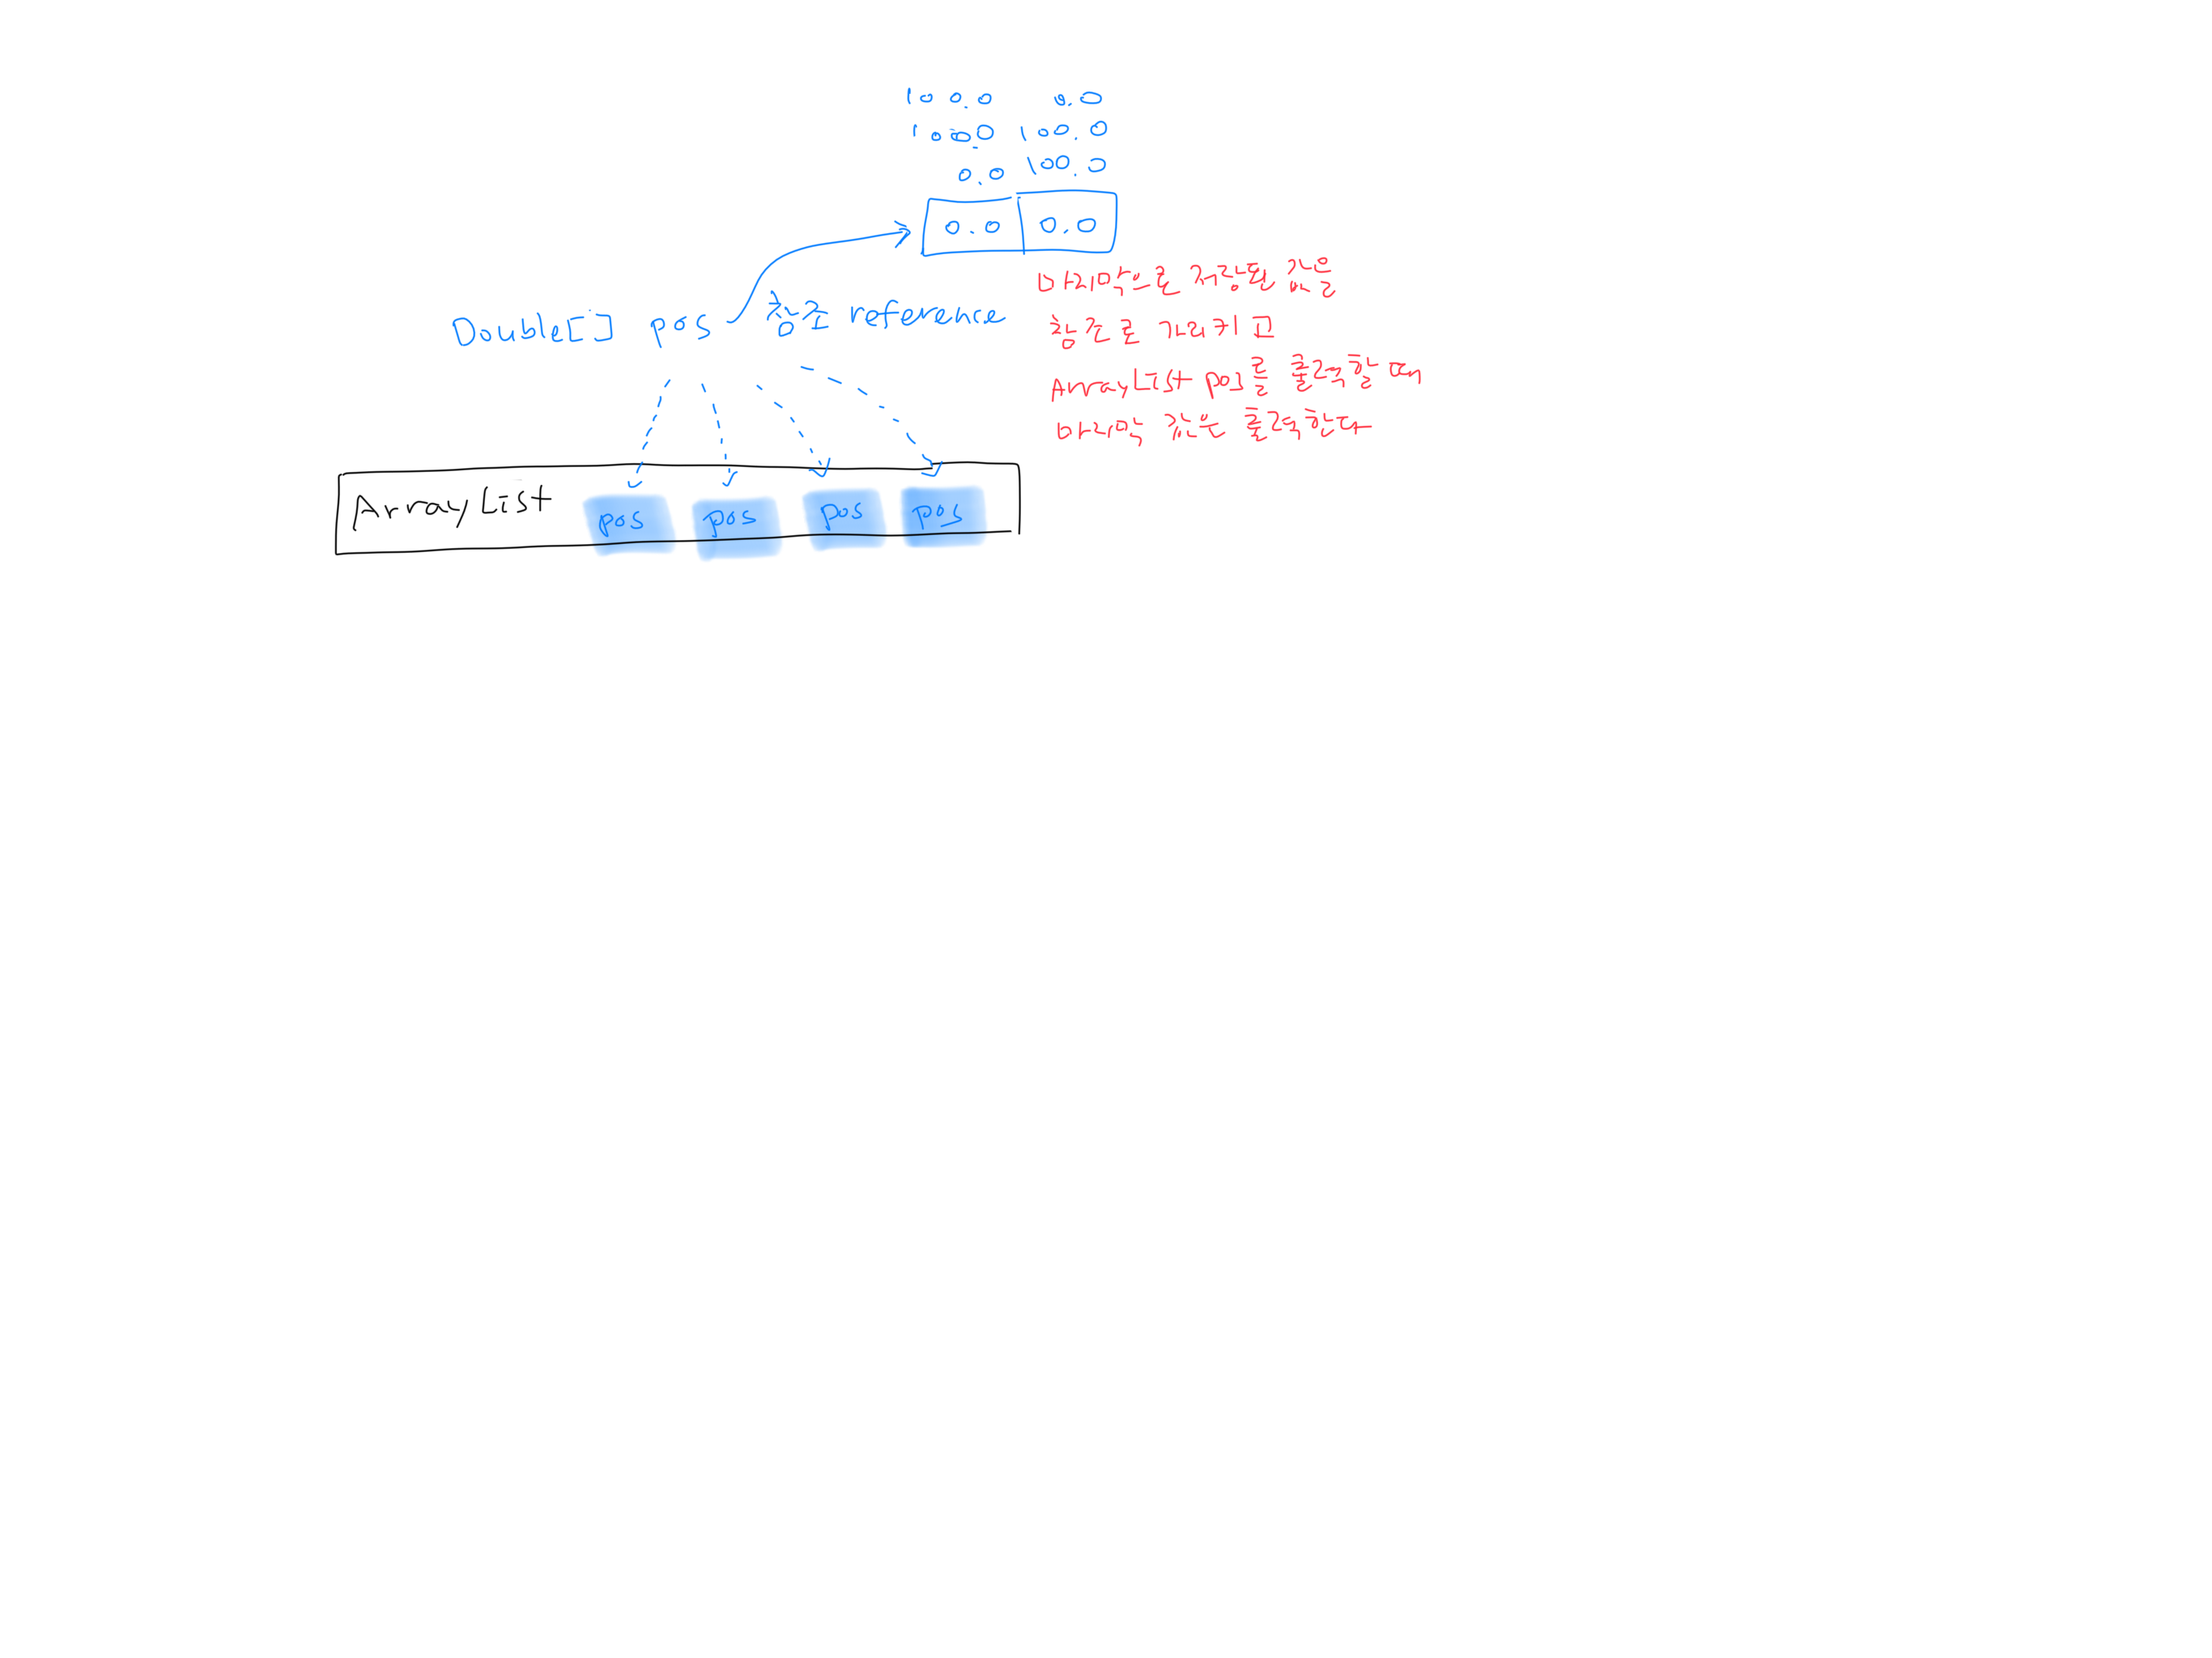 100.0 0.0
100.0 100.0
0.0 100.0
0.0 0.0
Double[] pos 참조 reference
마지막으로 저장된 값을
참조로 가리키고
ArrayList pos를 출력할 때
마지막 값은 출력한다
ArrayList pos pos pos pos